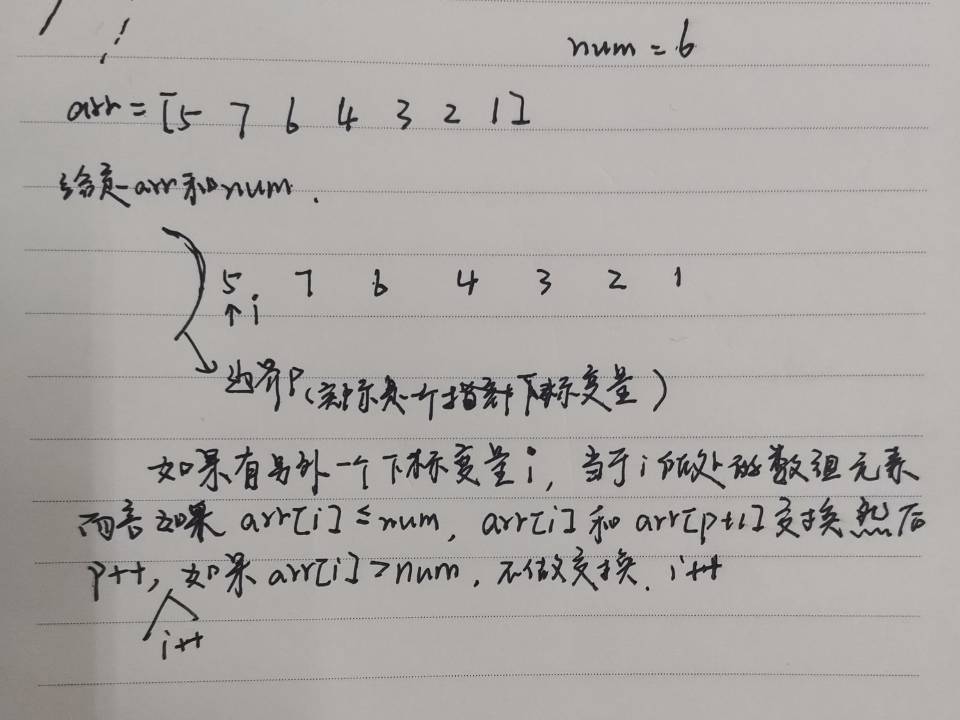 num = 6
arr = [5 7 6 4 3 2 1]
给定一arr和num.
5 7 6 4 3 2 1
↑i
边界P(实际是一个指针下标变量)
如果有另外一个下标变量i, 当于i所处的数组元素
而言如果 arr[i] ≤ num, arr[i] 和 arr[p+1] 交换然后
p++, 如果 arr[i] > num, 不做交换. i++
i++